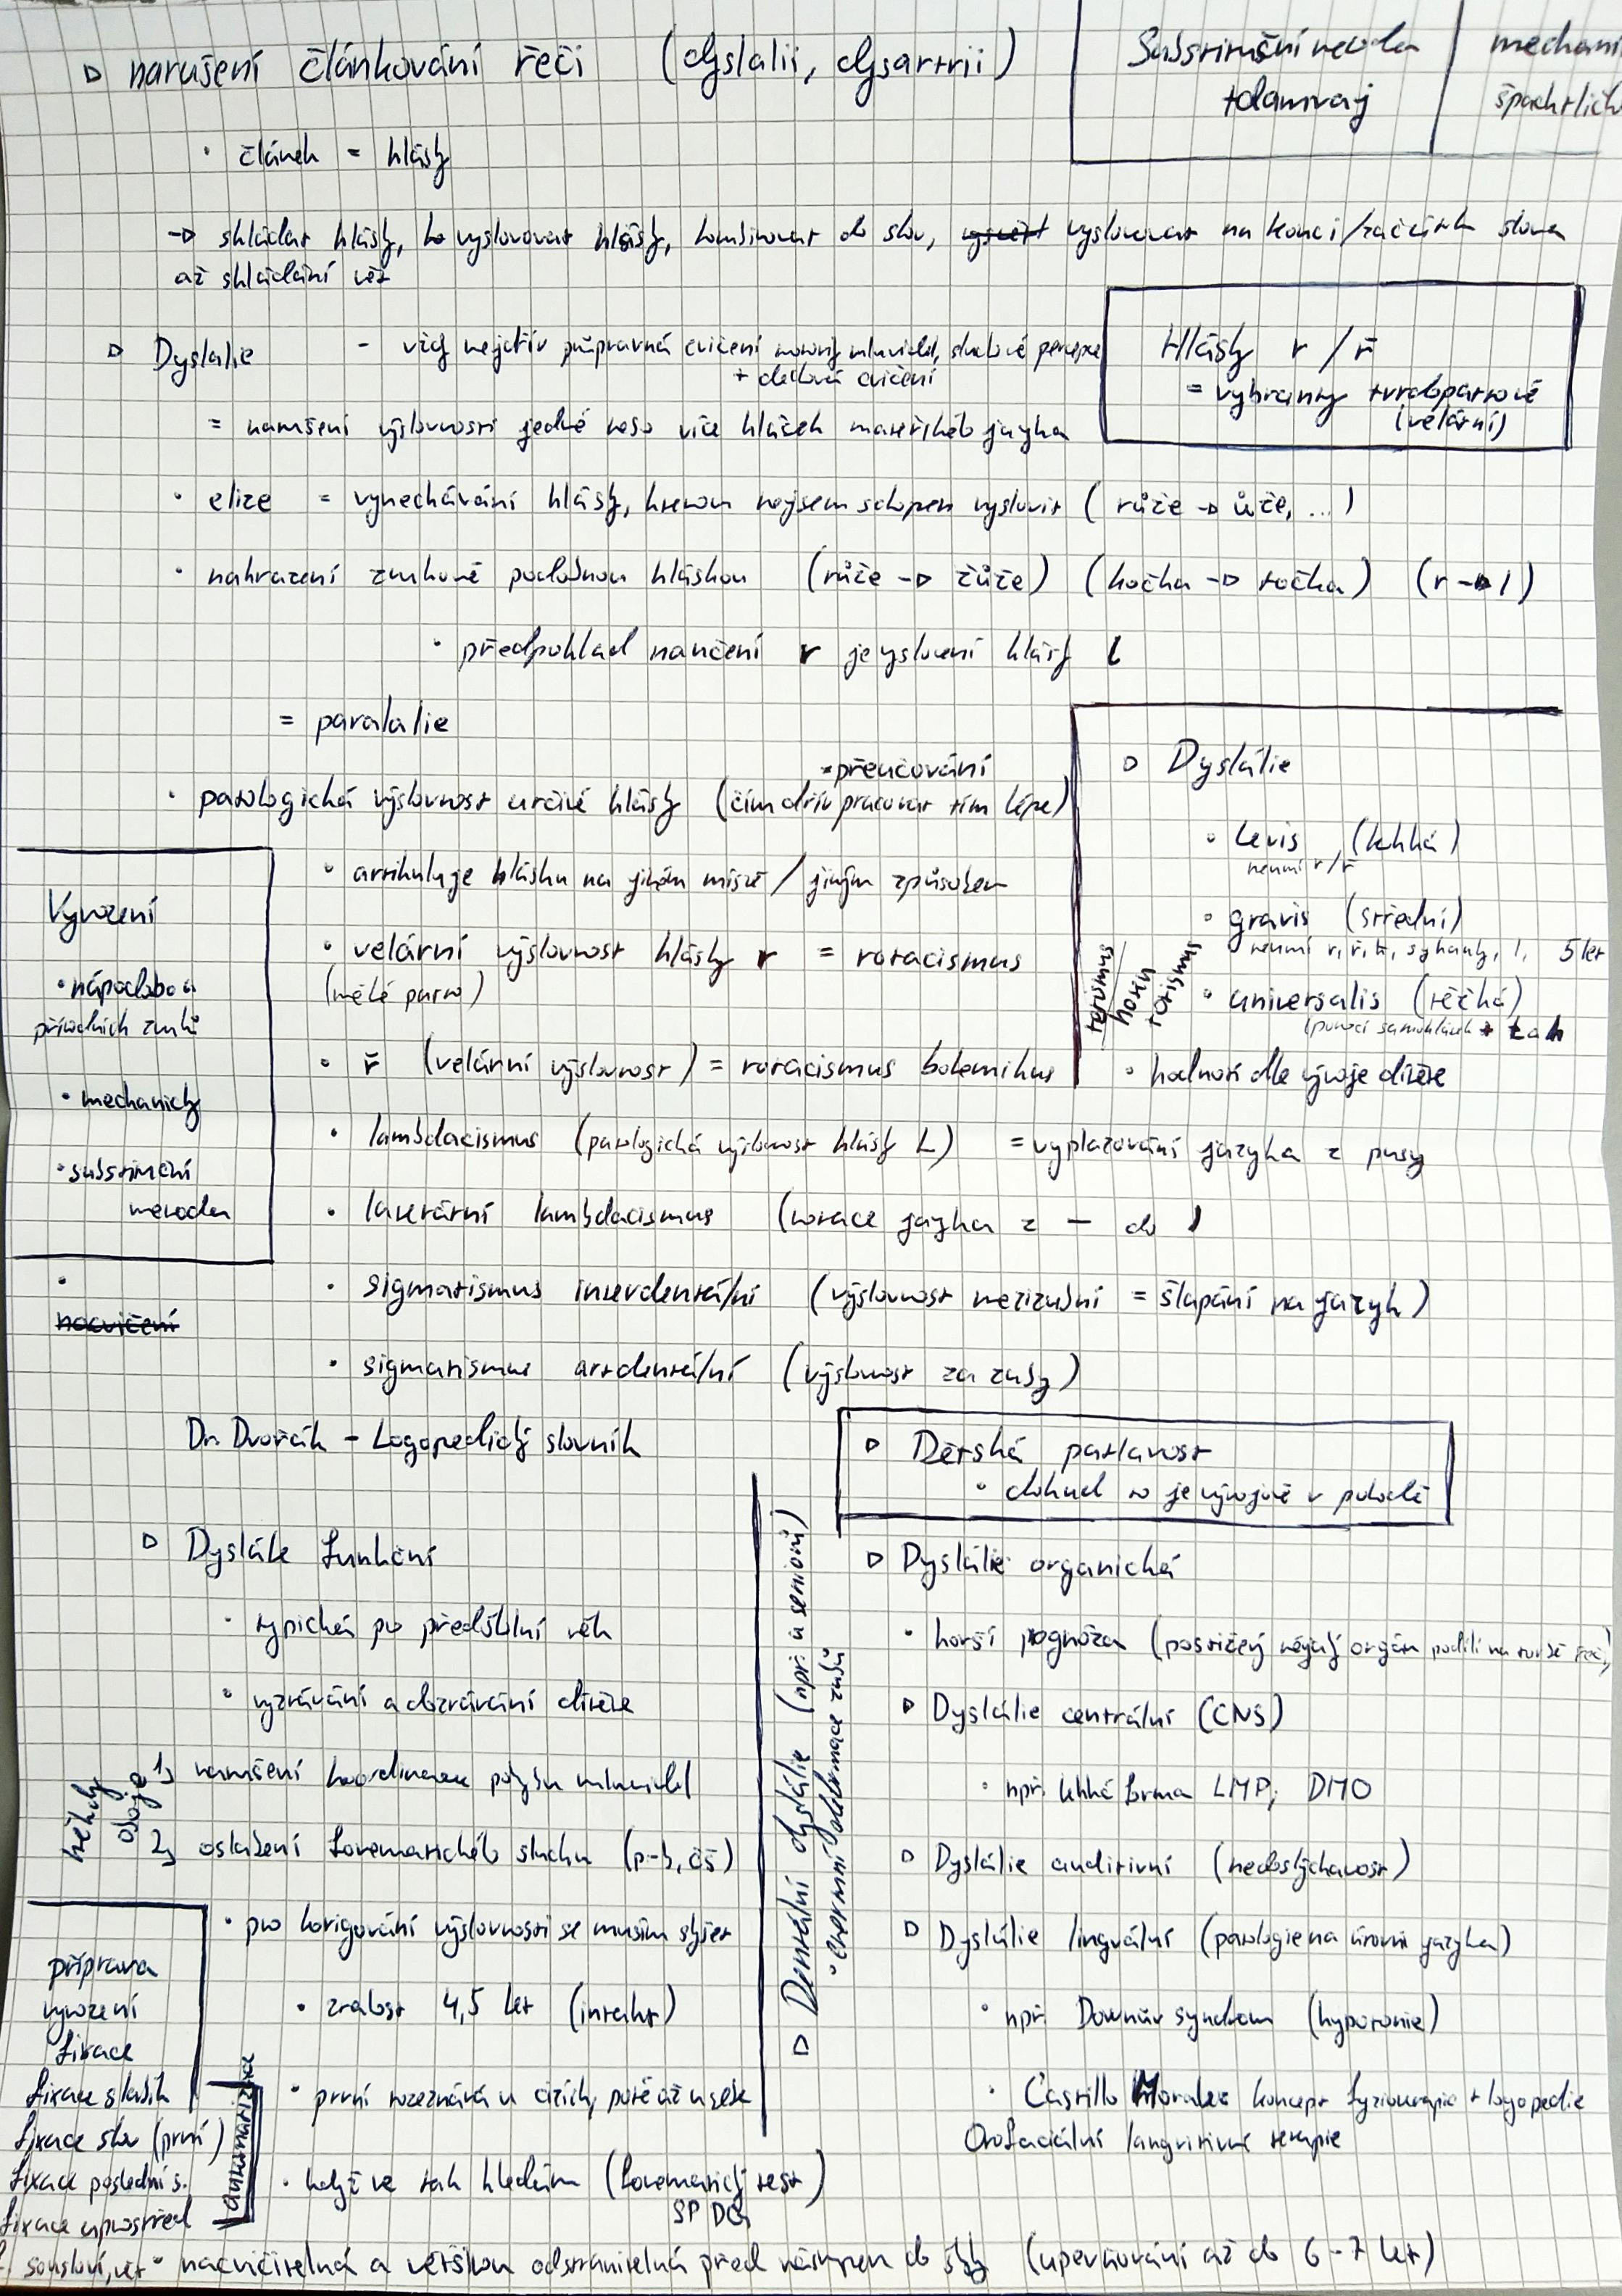 narušení článkování řeči (dyslalii, dysartrii)
mechani
článek = hlásky
skládat hlásky, vyslovovat hlásky, kombinovat do slov, vyslovovat na konci/začátku slova
až skládání vět
Dyslalie - vždy nejdřív průpravná cvičení motoriky mluvidel, sluchové percepce
+ dechová cvičení
Hlásky r / ř
= vybranty tvrdopatrové
(velární)
= narušení výslovnosti jedné nebo více hlásek mateřského jazyka
elize = vynechávání hlásky, kterou nejsem schopen vyslovit (růže → ůže, ...)
nahrazení zvukově podobnou hláskou (růže → žůže) (kočka → točka) (r → l)
předpoklad naučení r je yslovení hlásky l
= paralalie
přeučování
patologická výslovnost určité hlásky (čím dřív pracovat tím lépe)
artikuluje hlásku na jiném místě / jiným způsobem
velární výslovnost hlásky r = rotacismus
(měké patro)
ř (velární výslovnost) = rotacismus bohemikus
lambdacismus (patologická výslovnost hlásky L) = vyplazování jazyka z pusy
laterární lambdacismus (rotace jazyka z — do l
sigmatismus interdentální (výslovnost mezizubní = šlapání na jazyk)
sigmatismus addentální (výslovnost za zuby)
Dyslálie
Levis (lehká)
neumí r/ř
gravis (střední)
neumí r, ř, k, sykavky, l, 5 let
universalis (těžká)
(pomocí samohlásek + t a h
hodnotí dle vývoje dítěte
tetismus
hotentotismus
Vyvození
nápodobou
přírodních zvuků
mechanicky
substituční
metodou
nacvičení
Dr. Dvořák - Logopedický slovník
Dětská patlavost
dokud to je vývojově v pohodě
Dyslálie funkční
typická po předškolní věk
vyzrávání a dozrávání dítěte
někdy
oboje
1, narušení koordinace pohybu mluvidel
2, oslabení fonematického sluchu (p-b, čš)
pro korigování výslovnosti se musím slyšet
zralost 4,5 let (intakt)
první rozeznává u cizích, poté až u sebe
když ve tak hledám (fonematický test)
nacvičitelná a většinou odstranitelná před nástupem do školy (upevňování až do 6-7 let)
příprava
vyvození
fixace
fixace slabik
fixace slov (první)
fixace poslední s.
fixace uprostřed
sousloví, vět
automatizace
Dentální dyslálie (npř. u seniorů)
extermní deformace zubů
Dyslálie organická
horší pognóza (postižený nějaký orgán podílí na tvorbě řeči)
Dyslálie centrální (CNS)
npř. lehká forma LMP, DMO
Dyslálie auditivní (nedoslýchavost)
Dyslálie lingvální (patologie na úrovni jazyka)
npř. Downův syndrom (hypotonie)
Castillo Morales koncept fyzioterapie + logopedie
Orofaciální terapie